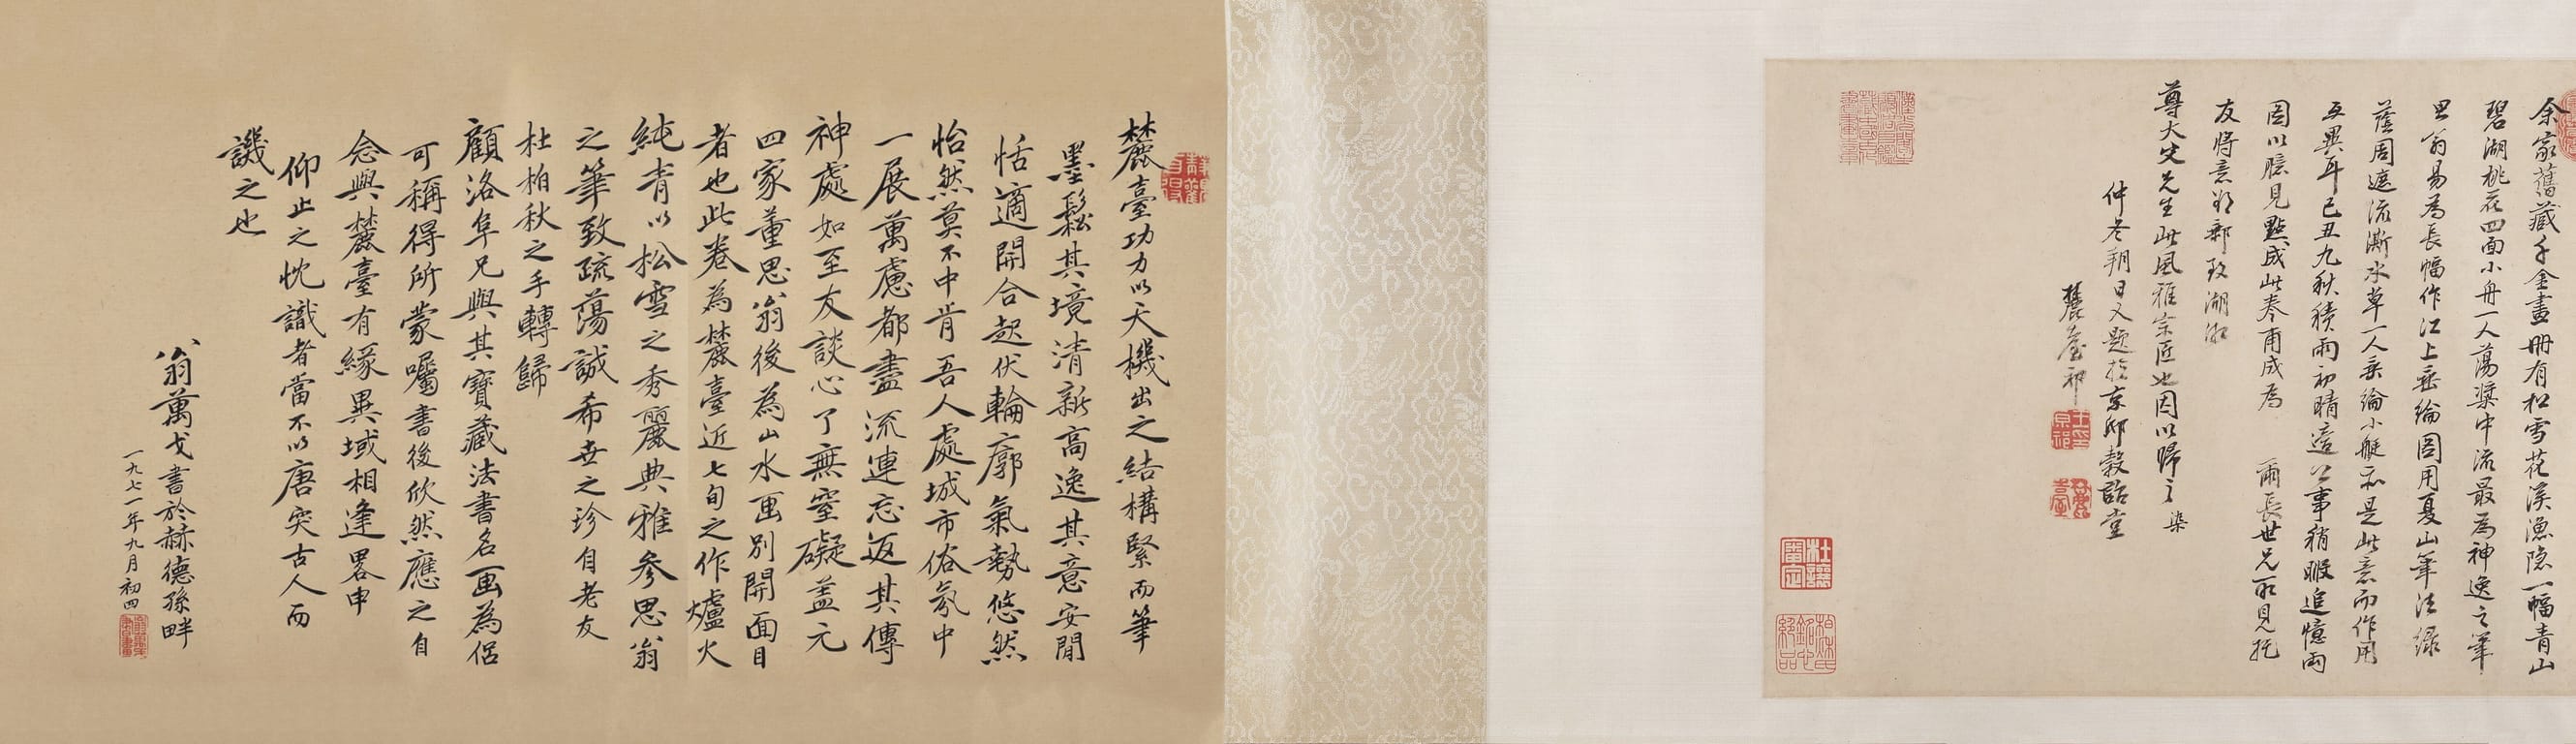 余家舊藏千金畫冊有松雪花溪漁隱一幅青山
碧湖桃花四面小舟一人蕩槳中流最為神逸之筆
思翁易為長幅作江上垂綸圖用夏山筆法綠
蔭周遮流澌水草一人垂綸小艇亦是此意而作用
互異耳己丑九秋積雨初晴適公事稍暇追憶兩
圖以臆見點成此卷甫成為 爾長世兄所見托
友將意郑鄭致湖湘
尊大史先生此風雅宗匠也因以歸之染
仲冬朔日又題於京邸穀詒堂
麓臺祁
王原祁印
麓臺
杜讓審定
柏秋氏銘心絕品
麓臺功力以天機出之結構緊而筆
墨鬆其境清新高逸其意安閒
恬適開合起伏輪廓氣勢悠然
怡然莫不中肯吾人處城市俗氛中
一展萬慮都盡流連忘返其傳
神處如至友談心了無窒礙蓋元
四家董思翁後為山水画別開面目
者也此卷為麓臺近七旬之作爐火
純青以松雪之秀麗典雅參思翁
之筆致疏蕩誠希世之珍自老友
杜柏秋之手轉歸
顧洛阜兄與其寶藏法書名画為侶
可稱得所蒙囑書後欣然應之自
念與麓臺有緣異域相逢畧申
仰止之忱識者當不以唐突古人而
譏之也
翁萬戈書於赫德孫畔
一九七一年九月初四